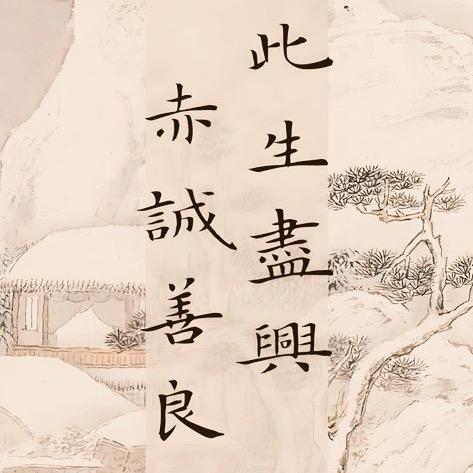 此生盡興
赤誠善良